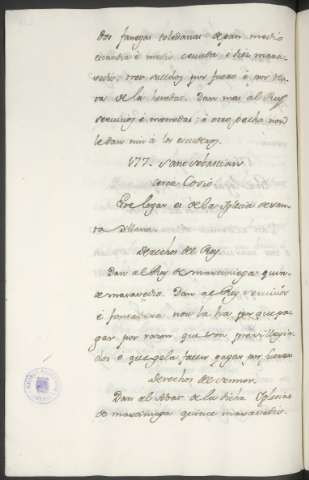 dos fanegas toledanas de pan medio
cuarta é medio cevada é dies mara-
vedis: tres sueldos por fuero é por
de la Dan mas al Rey
servicios é monedas é otro pecho non
le dan nin á los encartados.
177. Sant Sebastian
cerca Cosio
Este logar es de la Iglesia de san-
ta Illana.
Derechos del Rey.
Dan al Rey de martiniega quin-
ce maravedis. Dan al Rey servicios
é fonsadera non la ha, por que pa-
gar por razon que son previllegia-
dos é que gela facen pagar por fuerza
Derechos del sennor.
Dan al Abat de la dicha Iglesia
de martiniega quince maravedis.